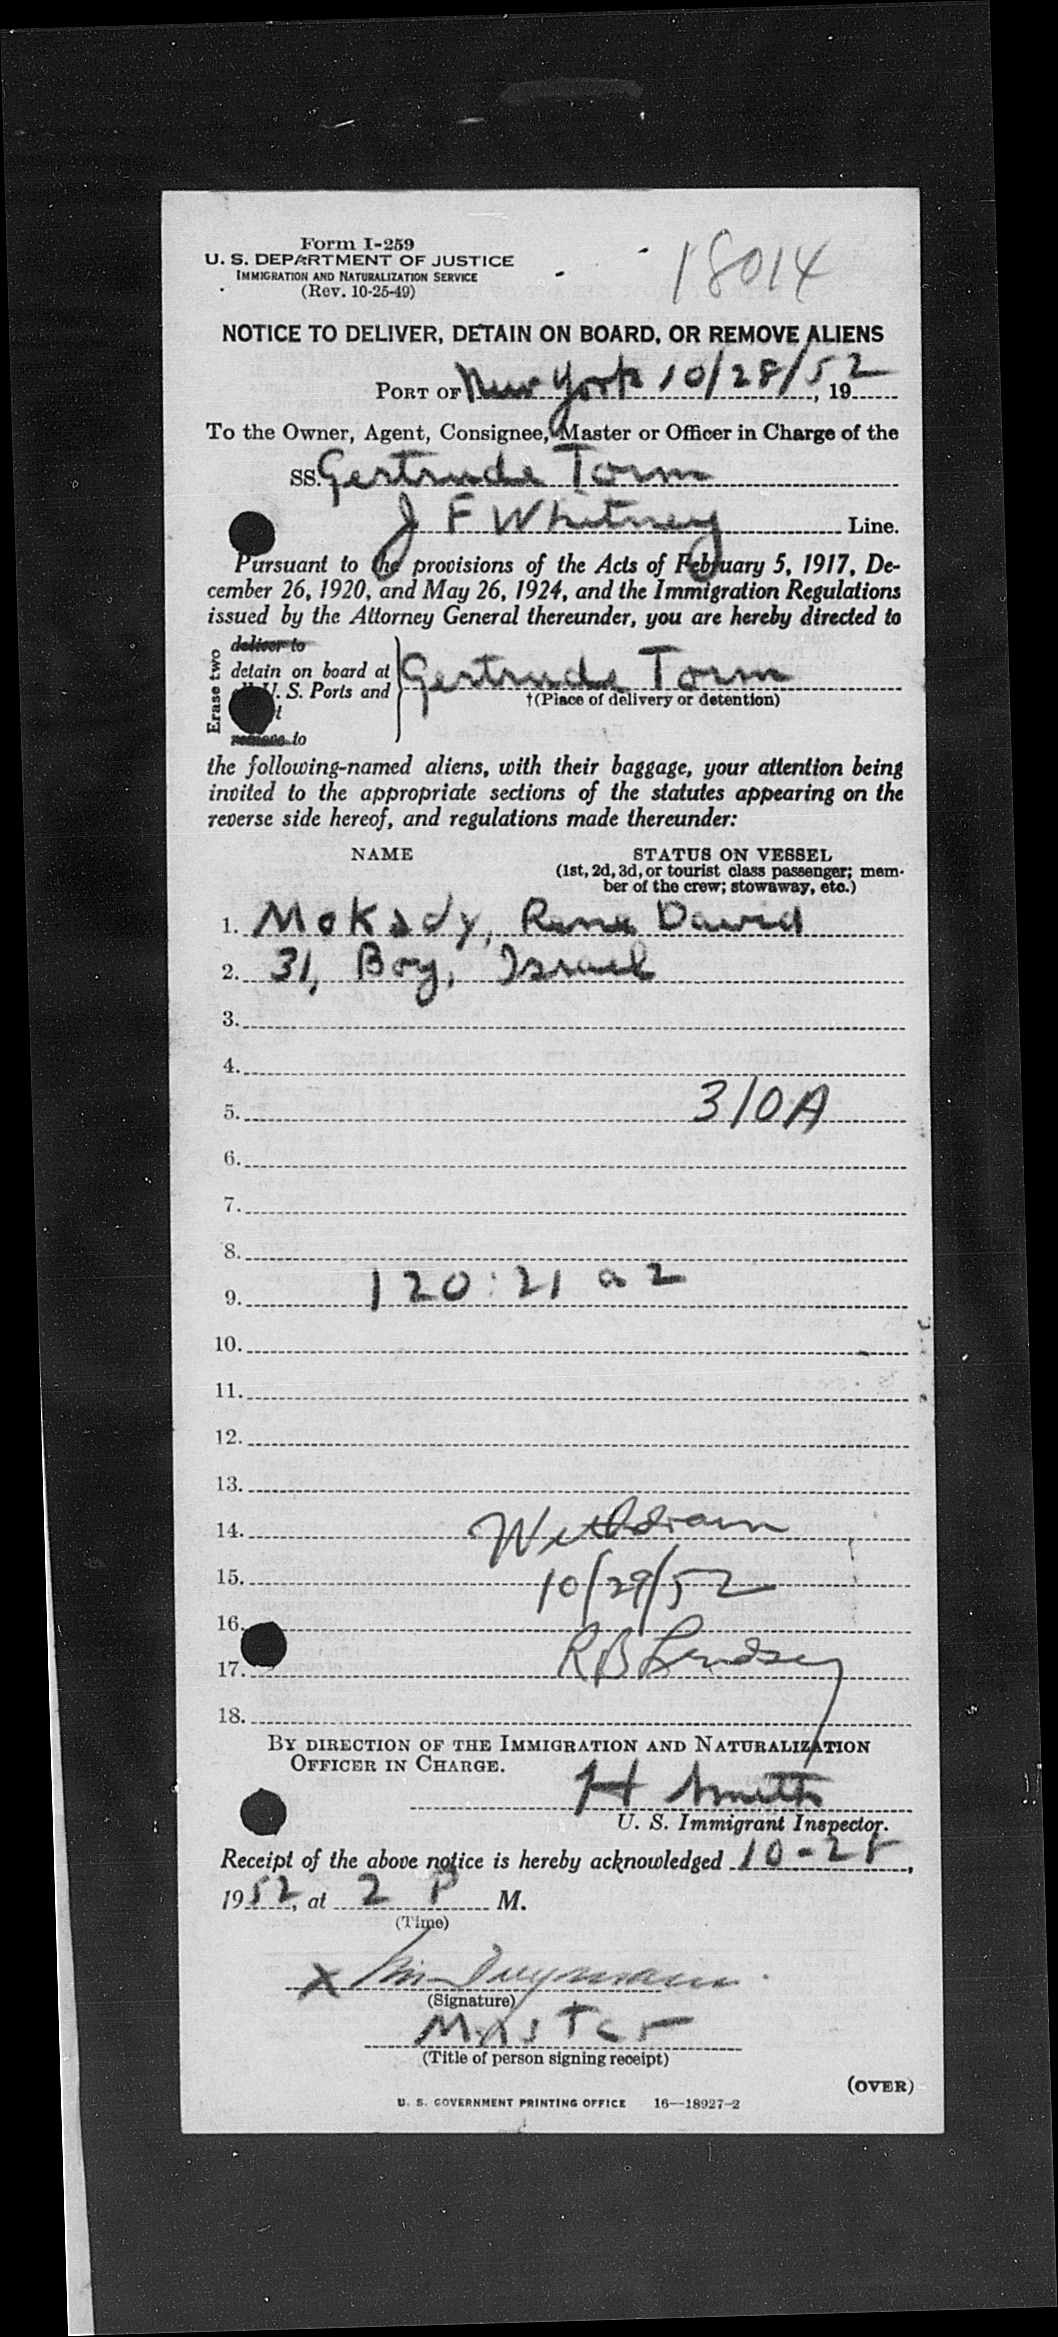 Form I-259
U. S. DEPARTMENT OF JUSTICE
IMMIGRATION AND NATURALIZATION SERVICE
(Rev. 10-25-49)
18014
NOTICE TO DELIVER, DETAIN ON BOARD, OR REMOVE ALIENS
PORT OF New York 10/28/52, 19
To the Owner, Agent, Consignee, Master or Officer in Charge of the
SS. Gertrude Torm
J F Whitney Line.
Pursuant to the provisions of the Acts of February 5, 1917, De-
cember 26, 1920, and May 26, 1924, and the Immigration Regulations
issued by the Attorney General thereunder, you are hereby directed to
Erase two
deliver to
detain on board at
U. S. Ports and
remove to
Gertrude Torm
†(Place of delivery or detention)
the following-named aliens, with their baggage, your attention being
invited to the appropriate sections of the statutes appearing on the
reverse side hereof, and regulations made thereunder:
NAME STATUS ON VESSEL
(1st, 2d, 3d, or tourist class passenger; mem-
ber of the crew; stowaway, etc.)
1. Mokady, David
2. 31, Boy, Israel
3.
4.
5. 310A
6.
7.
8.
9. 120:21 a 2
10.
11.
12.
13.
14. Withdrawn
15. 10/29/52
16.
17. R B Lindsey
18.
BY DIRECTION OF THE IMMIGRATION AND NATURALIZATION
OFFICER IN CHARGE.
H Smith
U. S. Immigrant Inspector.
Receipt of the above notice is hereby acknowledged 10-28,
1952, at 2 P M.
(Time)
X
(Signature)
Master
(Title of person signing receipt)
(OVER)
U. S. GOVERNMENT PRINTING OFFICE 16—18927-2